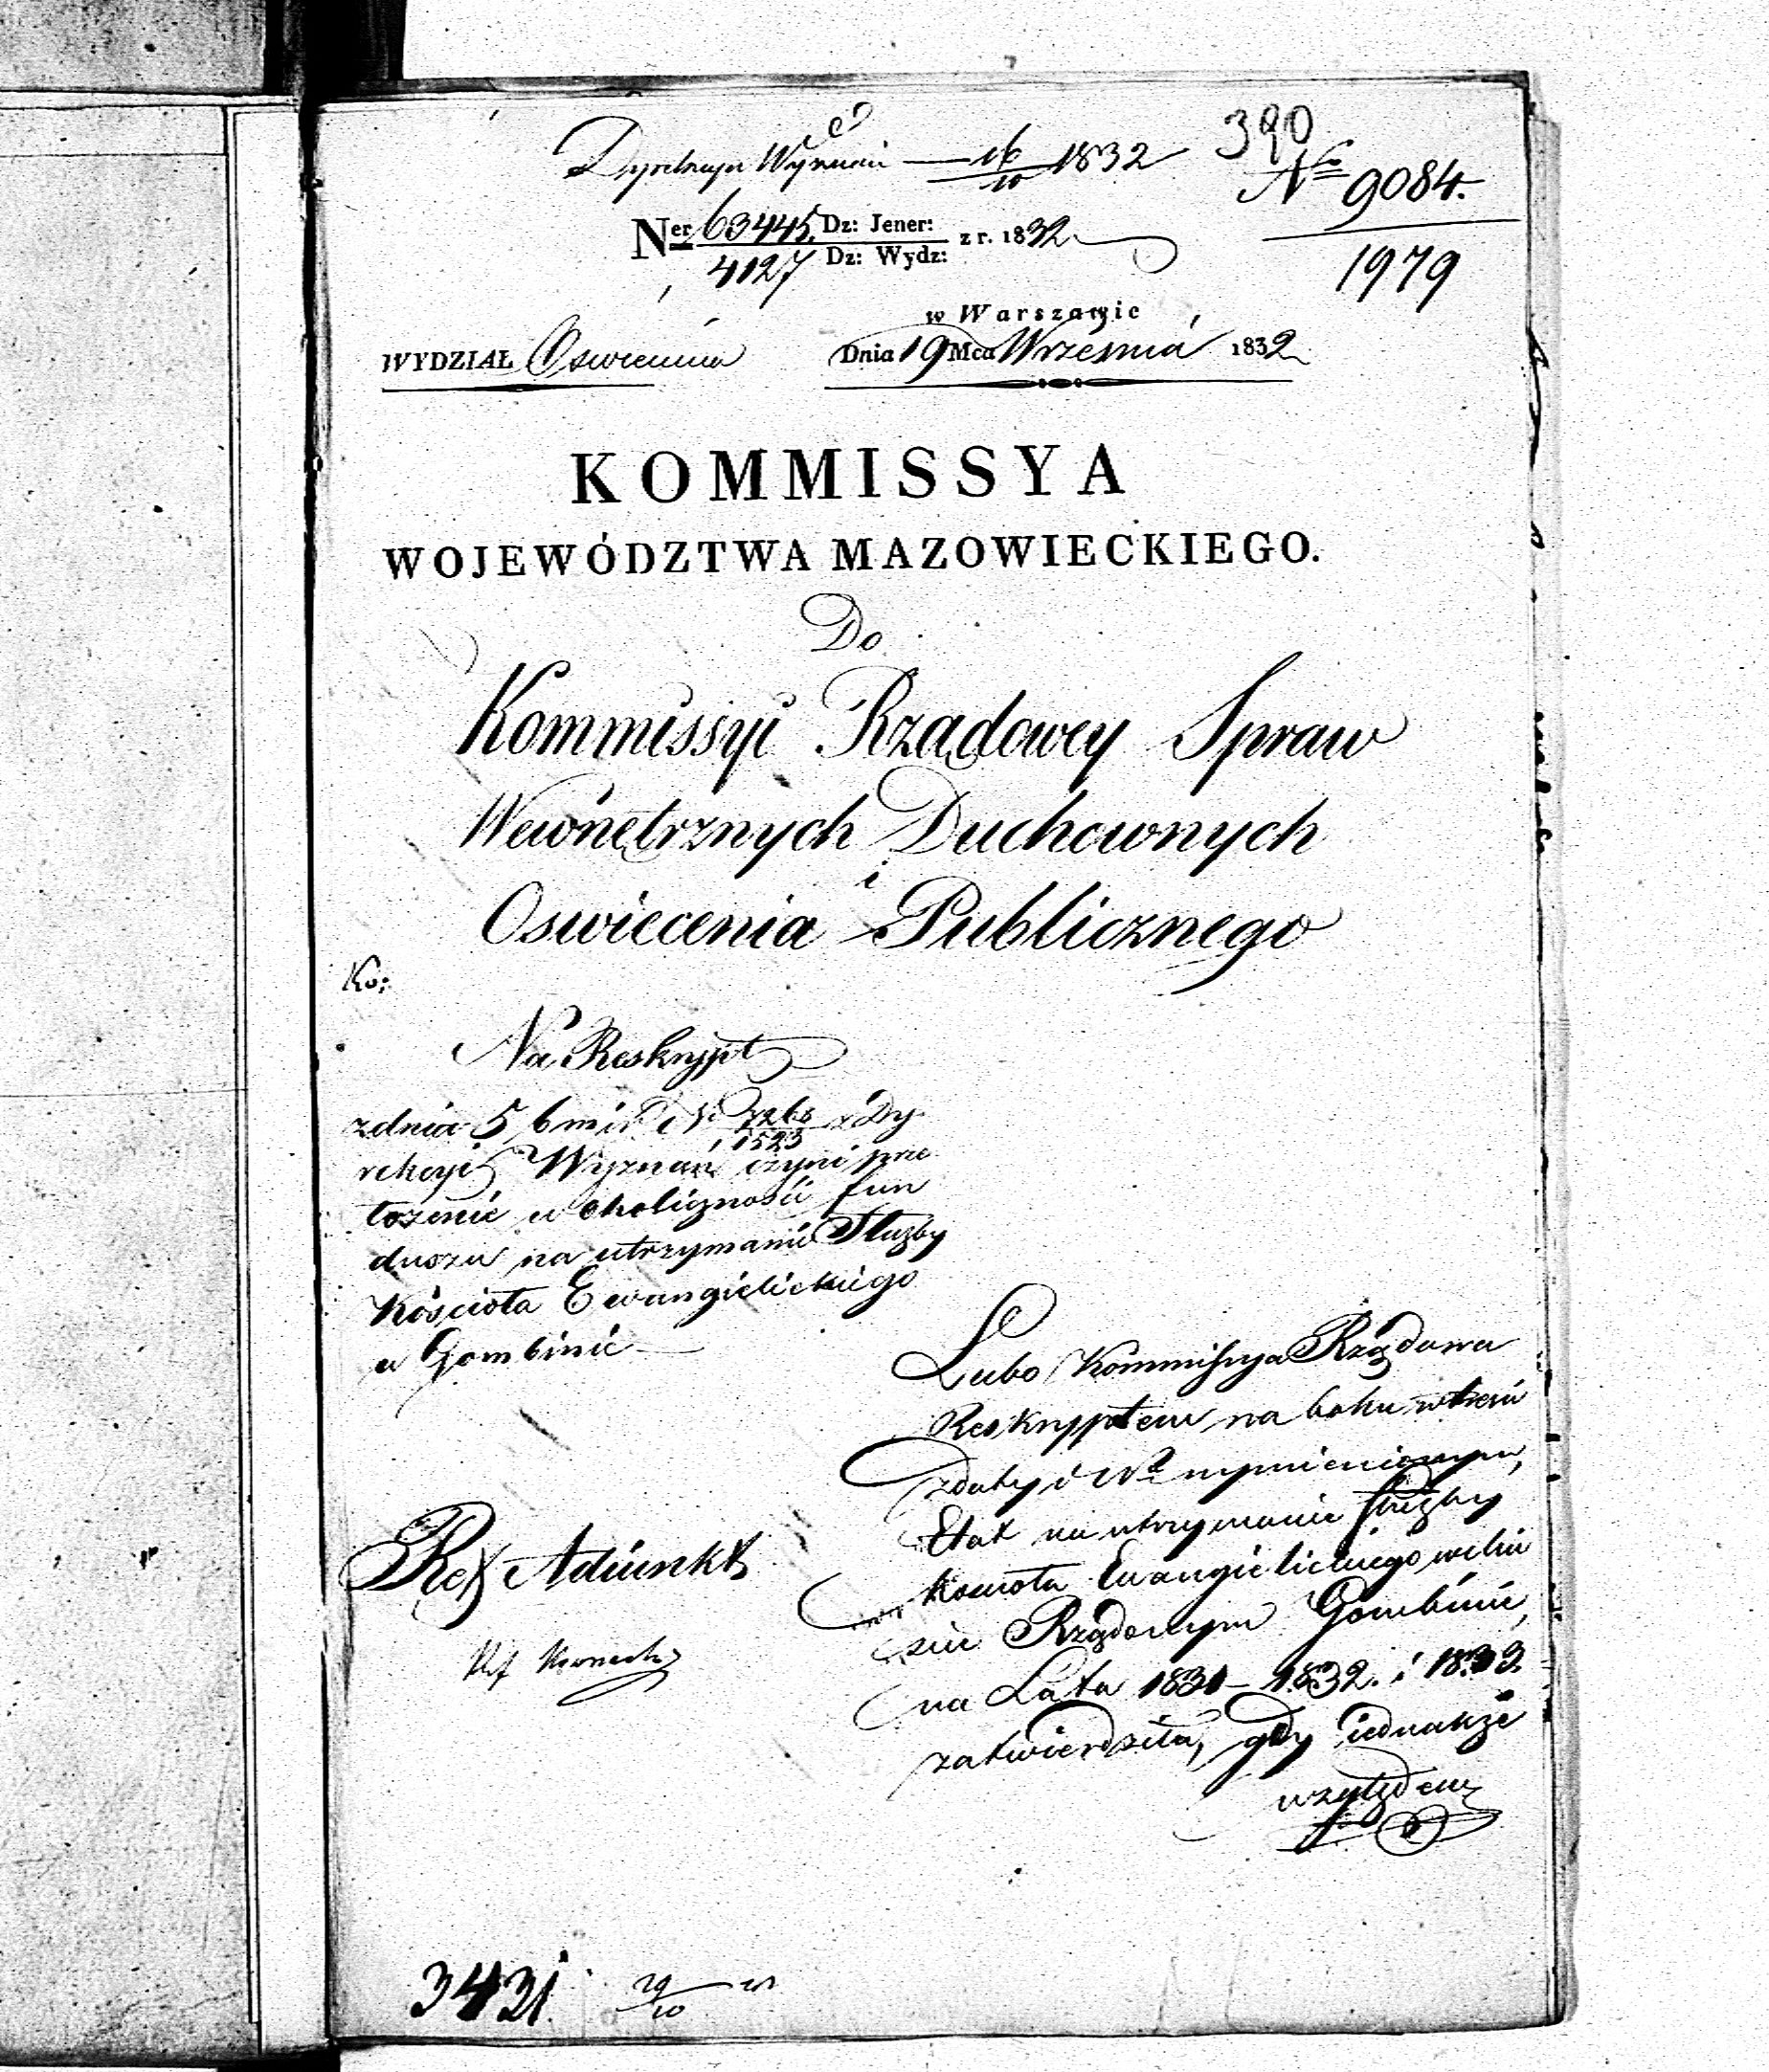 390
Dyrekcya Wyznań — 16/10 1832
No 9084.
1979
Ner 63445 Dz: Jener: z r. 1832
4127 Dz: Wydz:
w Warszawie
WYDZIAŁ Oswiecenia Dnia 19 Mca Września 1832
KOMMISSYA
WOJEWÓDZTWA MAZOWIECKIEGO.
Do
Kommissyi Rządowey Spraw
Wewnętrznych Duchownych
i
Oswiecenia Publicznego
Ko:
Na Reskrypt
z dnia 5 b m i r No 7268/1523 z Dy
rekcyi Wyznań czyni prze
łożenie w okoliczności fun
duszu na utrzymanie Służby
Kościoła Ewangielickiego
w Gombinie
Ref Adiunkt
Lubo Kommissya Rządowa
Reskryptem na boku w treści
z daty i No wymienionym,
Etat na utrzymanie służby
kościoła Ewangielickiego w mie
ście Rządowym Gombinie,
na Lata 1831 – 1832. i 1833.
zatwierdziła, gdy iednakże
względem
3431. 29/10